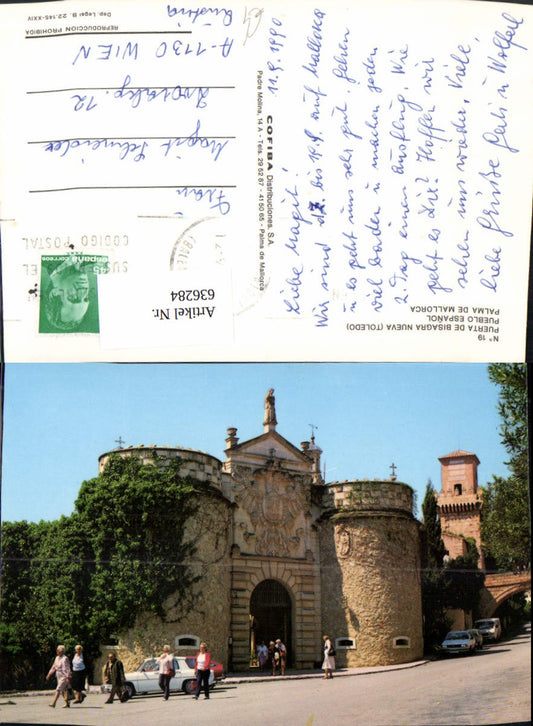 Nº 19
PUERTA DE BISAGRA NUEVA (TOLEDO)
PUEBLO ESPAÑOL
PALMA DE MALLORCA
11.9.1990.
Liebe Magit!
Wir sind bis 18.9. auf Mallorca
u es geht uns sehr gut. Gehen
viel baden u machen jeden
2. Tag einen Ausflug. Wie
geht es Dir? Hoffen wir
sehen uns wieder. Viele
liebe Grüße
COFIBA Distribuciones, S.A.
Padre Molina, 14 A - Tels. 29 52 87 - 41 50 65 - Palma de Mallorca
Frau
Magit Schneider
12
A-1130 WIEN
Austria
REPRODUCCION PROHIBIDA
Dep. Legal B. 22.145-XXIV
CODIGO POSTAL
España correos
Artikel Nr.
636284